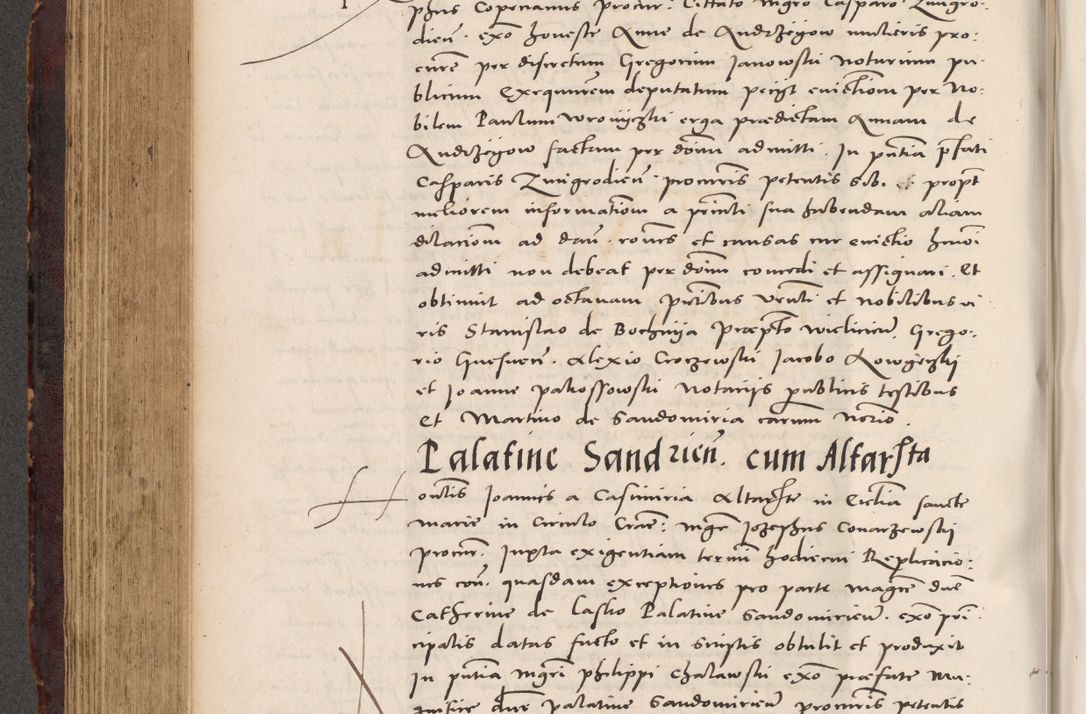 phus Copenamus procur. Cittato mgro Casparo Zmigro-
dien. exo honeste Anne de Andrzegow mulieris pro-
curre per discretum Gregorium Janowski notarium pu-
blicum Exequutem deputatum petijt euictiom per No-
bilem Paulum wronijczki erga prædictam Annam de
Andrzegow factam per dom admitti. In pntia pfati
Casparis Zmigrodien procuris petentis sibi et propt
meliorem informatiom a printi sua habendam aliam
dilaciom ad dan. rones et causas cur euictio hmoi
admitti non debeat per dom concedi et assignari. Et
obtinuit ad octauam pntibus venli et nobilibus vi
ris Stanislao de Bochnija Præpto wielicien, Grego-
rio Gnesnen. Alexio Croczewski Jacobo Kowgezkij
et Joanne pakossowski Notarijs publicis testibus
Et Martino de Sandomiria earum Nrio.
Palatine Sandzien. cum Altarsta
onlis Joannis a Casimiria Altarste in Ecclia sancte
Marie in Circulo Crac. mgr Josephus Conarzewskij
procur. Juxta exigentiam termi hodierni Replicacio-
nes con. quasdam exceptiones pro parte magce dne
Catherine de Lasko Palatine Sandomirien. exo prin
cipalis datas facto et in scriptis obtulit et produxit
In pntia mgri philippi Chalawski exo præfate Ma-
gnifice dne palatine Sandomirien procuris petentis